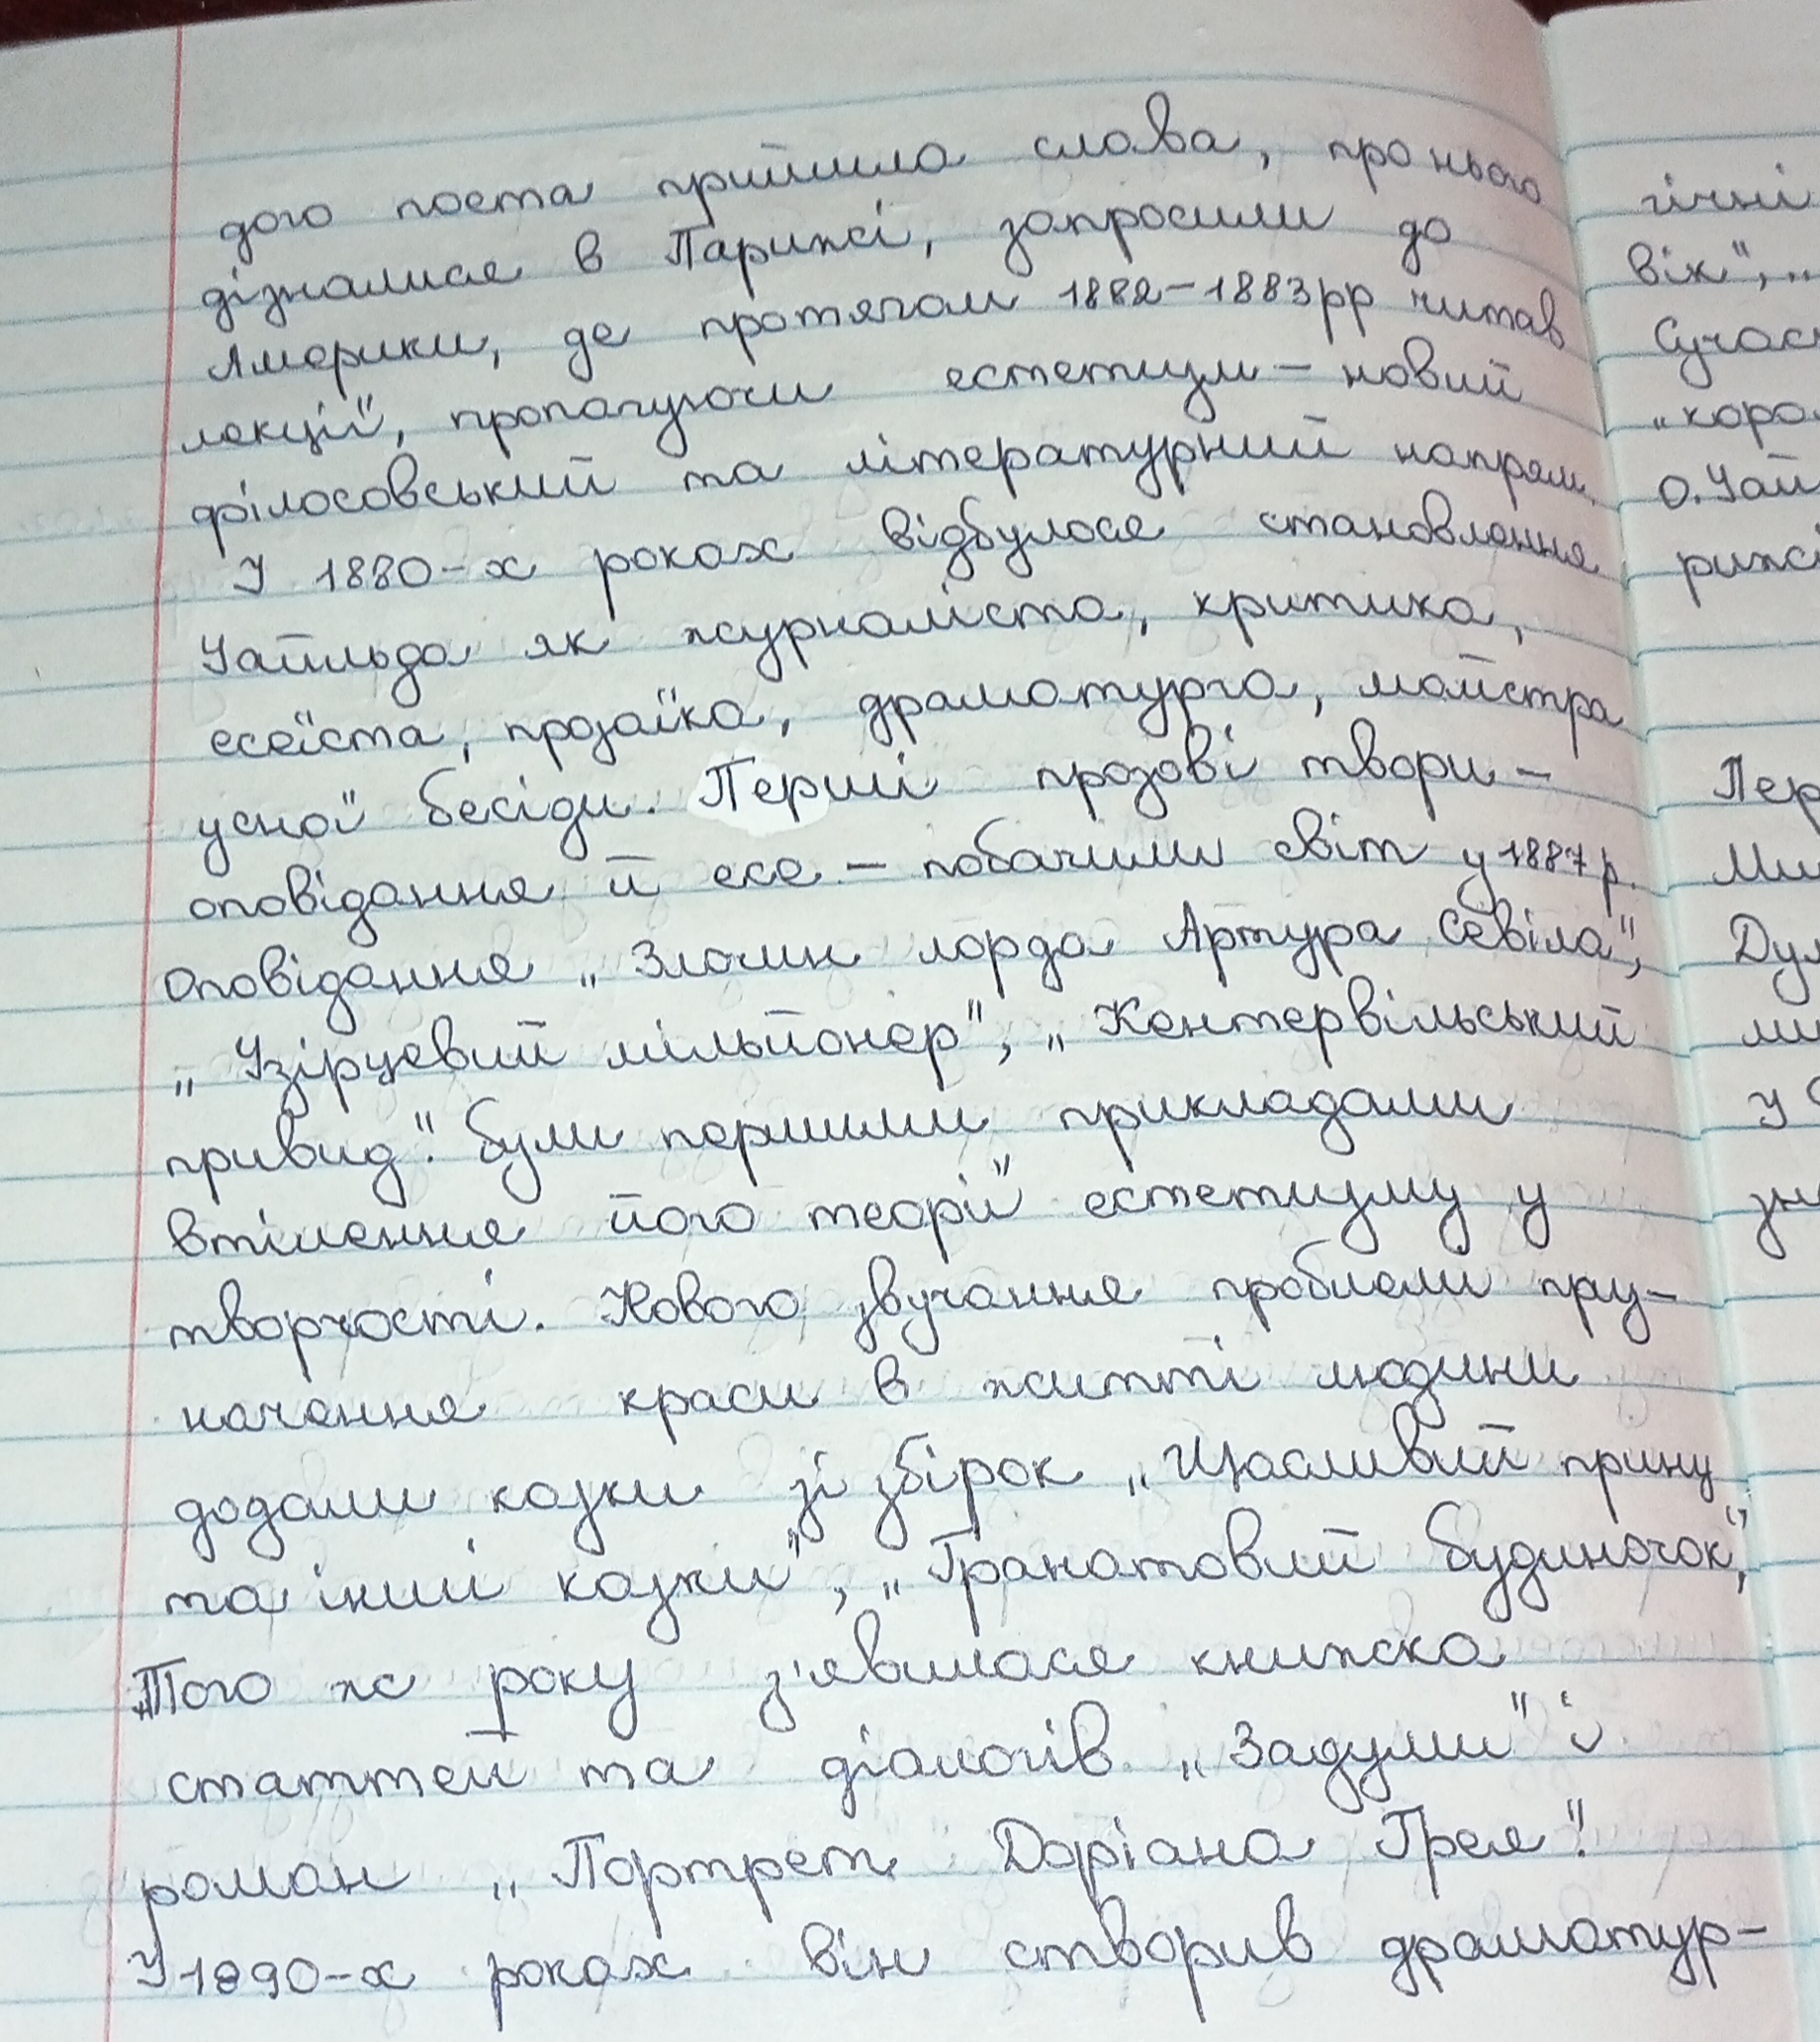 дого поета прийшла слава, про нього
дізналися в Парижі, запросили до
Америки, де протягом 1882-1883рр читав
лекції, пропагуючи естетизм - новий
філосовський та літературний напрям.
У 1880-х роках відбулося становлення
Уайльда як журналіста, критика,
есеїста, прозаїка, драматурга, майстра
усної бесіди. Перші прозові твори -
оповідання й есе - побачили світ у 1887р.
Оповідання „Злочин лорда Артура Севіла",
„Узірцевий мільйонер", „Кентервільський
привид". були першими прикладами
втілення його теорії естетизму у
творчості. Нового звучання проблеми пру-
начення краси в житті людини
додали казки зі збірок „Щасливий принц
та інші казки", „Гранатовий будиночок",
Того ж року з'явилася книжка
статтей та діалогів „Задуми" і
роман „Портрет Доріана Грея".
У 1890-х роках він створив драматур-
гічні
вік", „
Сучас
„коро
О.Уай
рижі
Пер
Ми
Дул
ми
У
зн